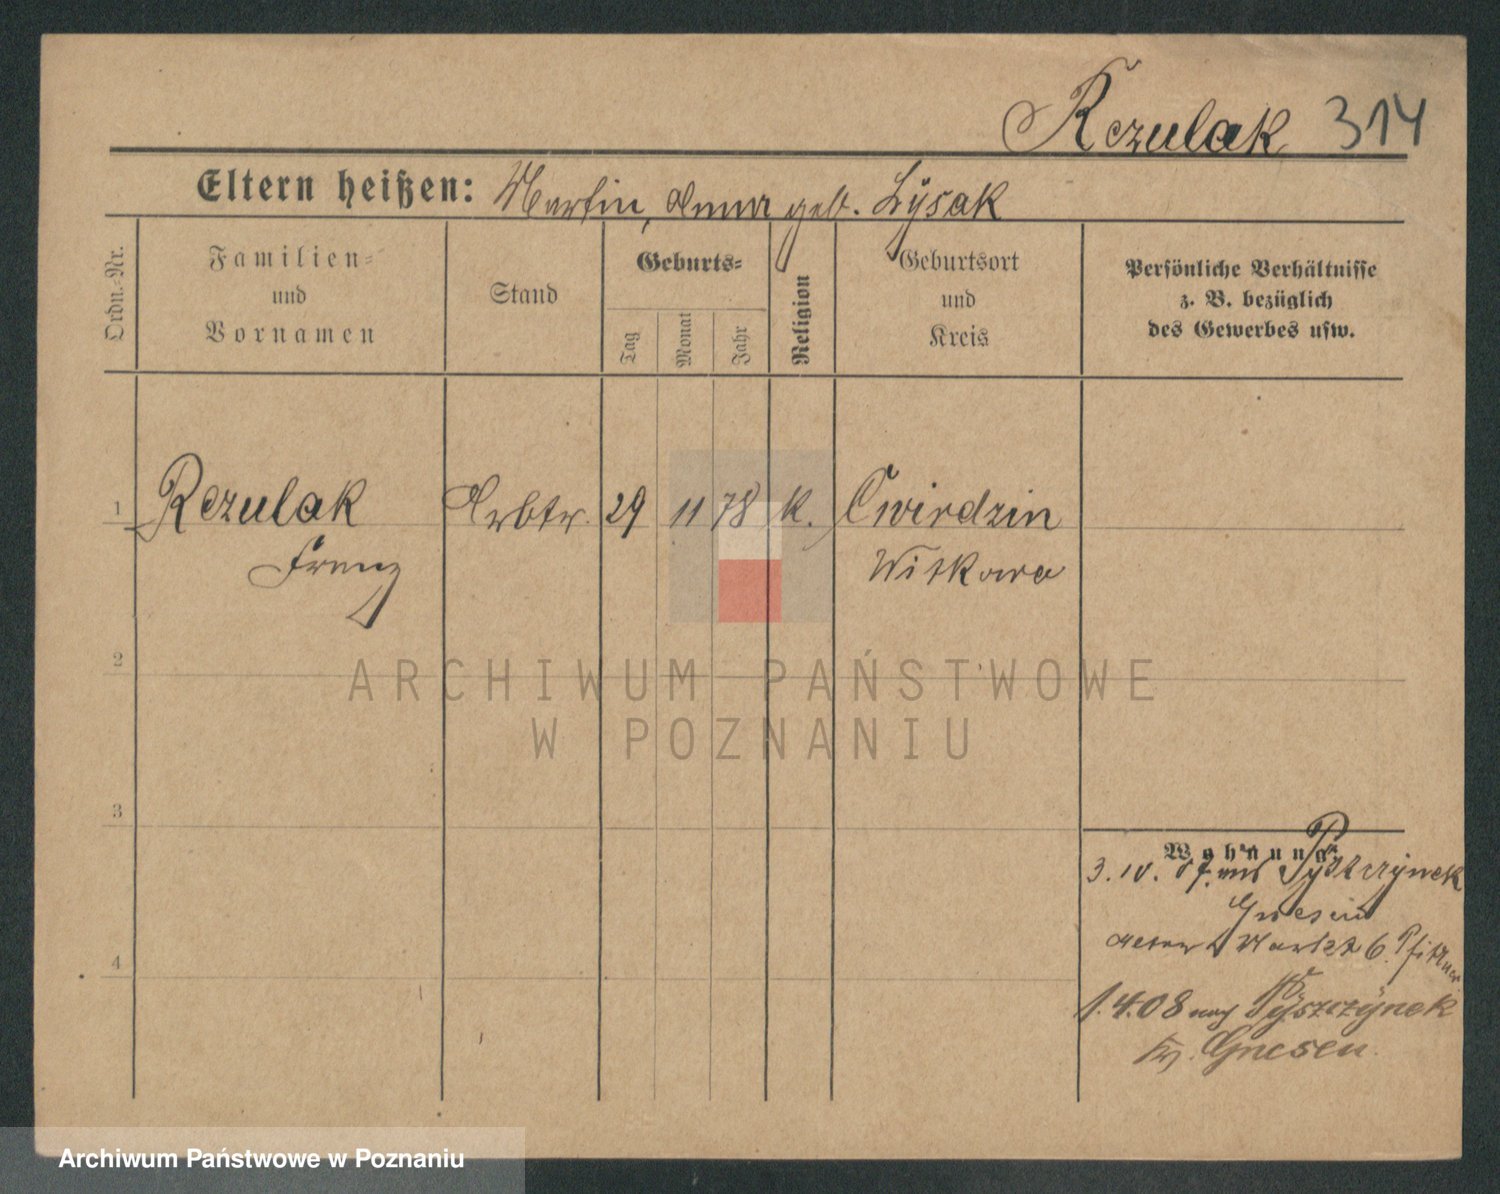 Rezulak 314
Eltern heißen: Martin, Anna geb. Lÿsak
Ordn.-Nr.
Familien-
und
Vornamen
Stand
Geburts-
Tag
Monat
Jahr
Religion
Geburtsort
und
Kreis
Persönliche Verhältnisse
z. B. bezüglich
des Gewerbes usw.
1 Rezulak Arbtr. 29 11 78 k. Cwirdzin
Franz Witkowo
2
3
4
Wohnung
3. 10. 07. aus Pÿszczÿnek
Gnesen
Markt 6.
1.4.08 nach Pÿszczÿnek
Kr. Gnesen.
ARCHIWUM PAŃSTWOWE
W POZNANIU
Archiwum Państwowe w Poznaniu